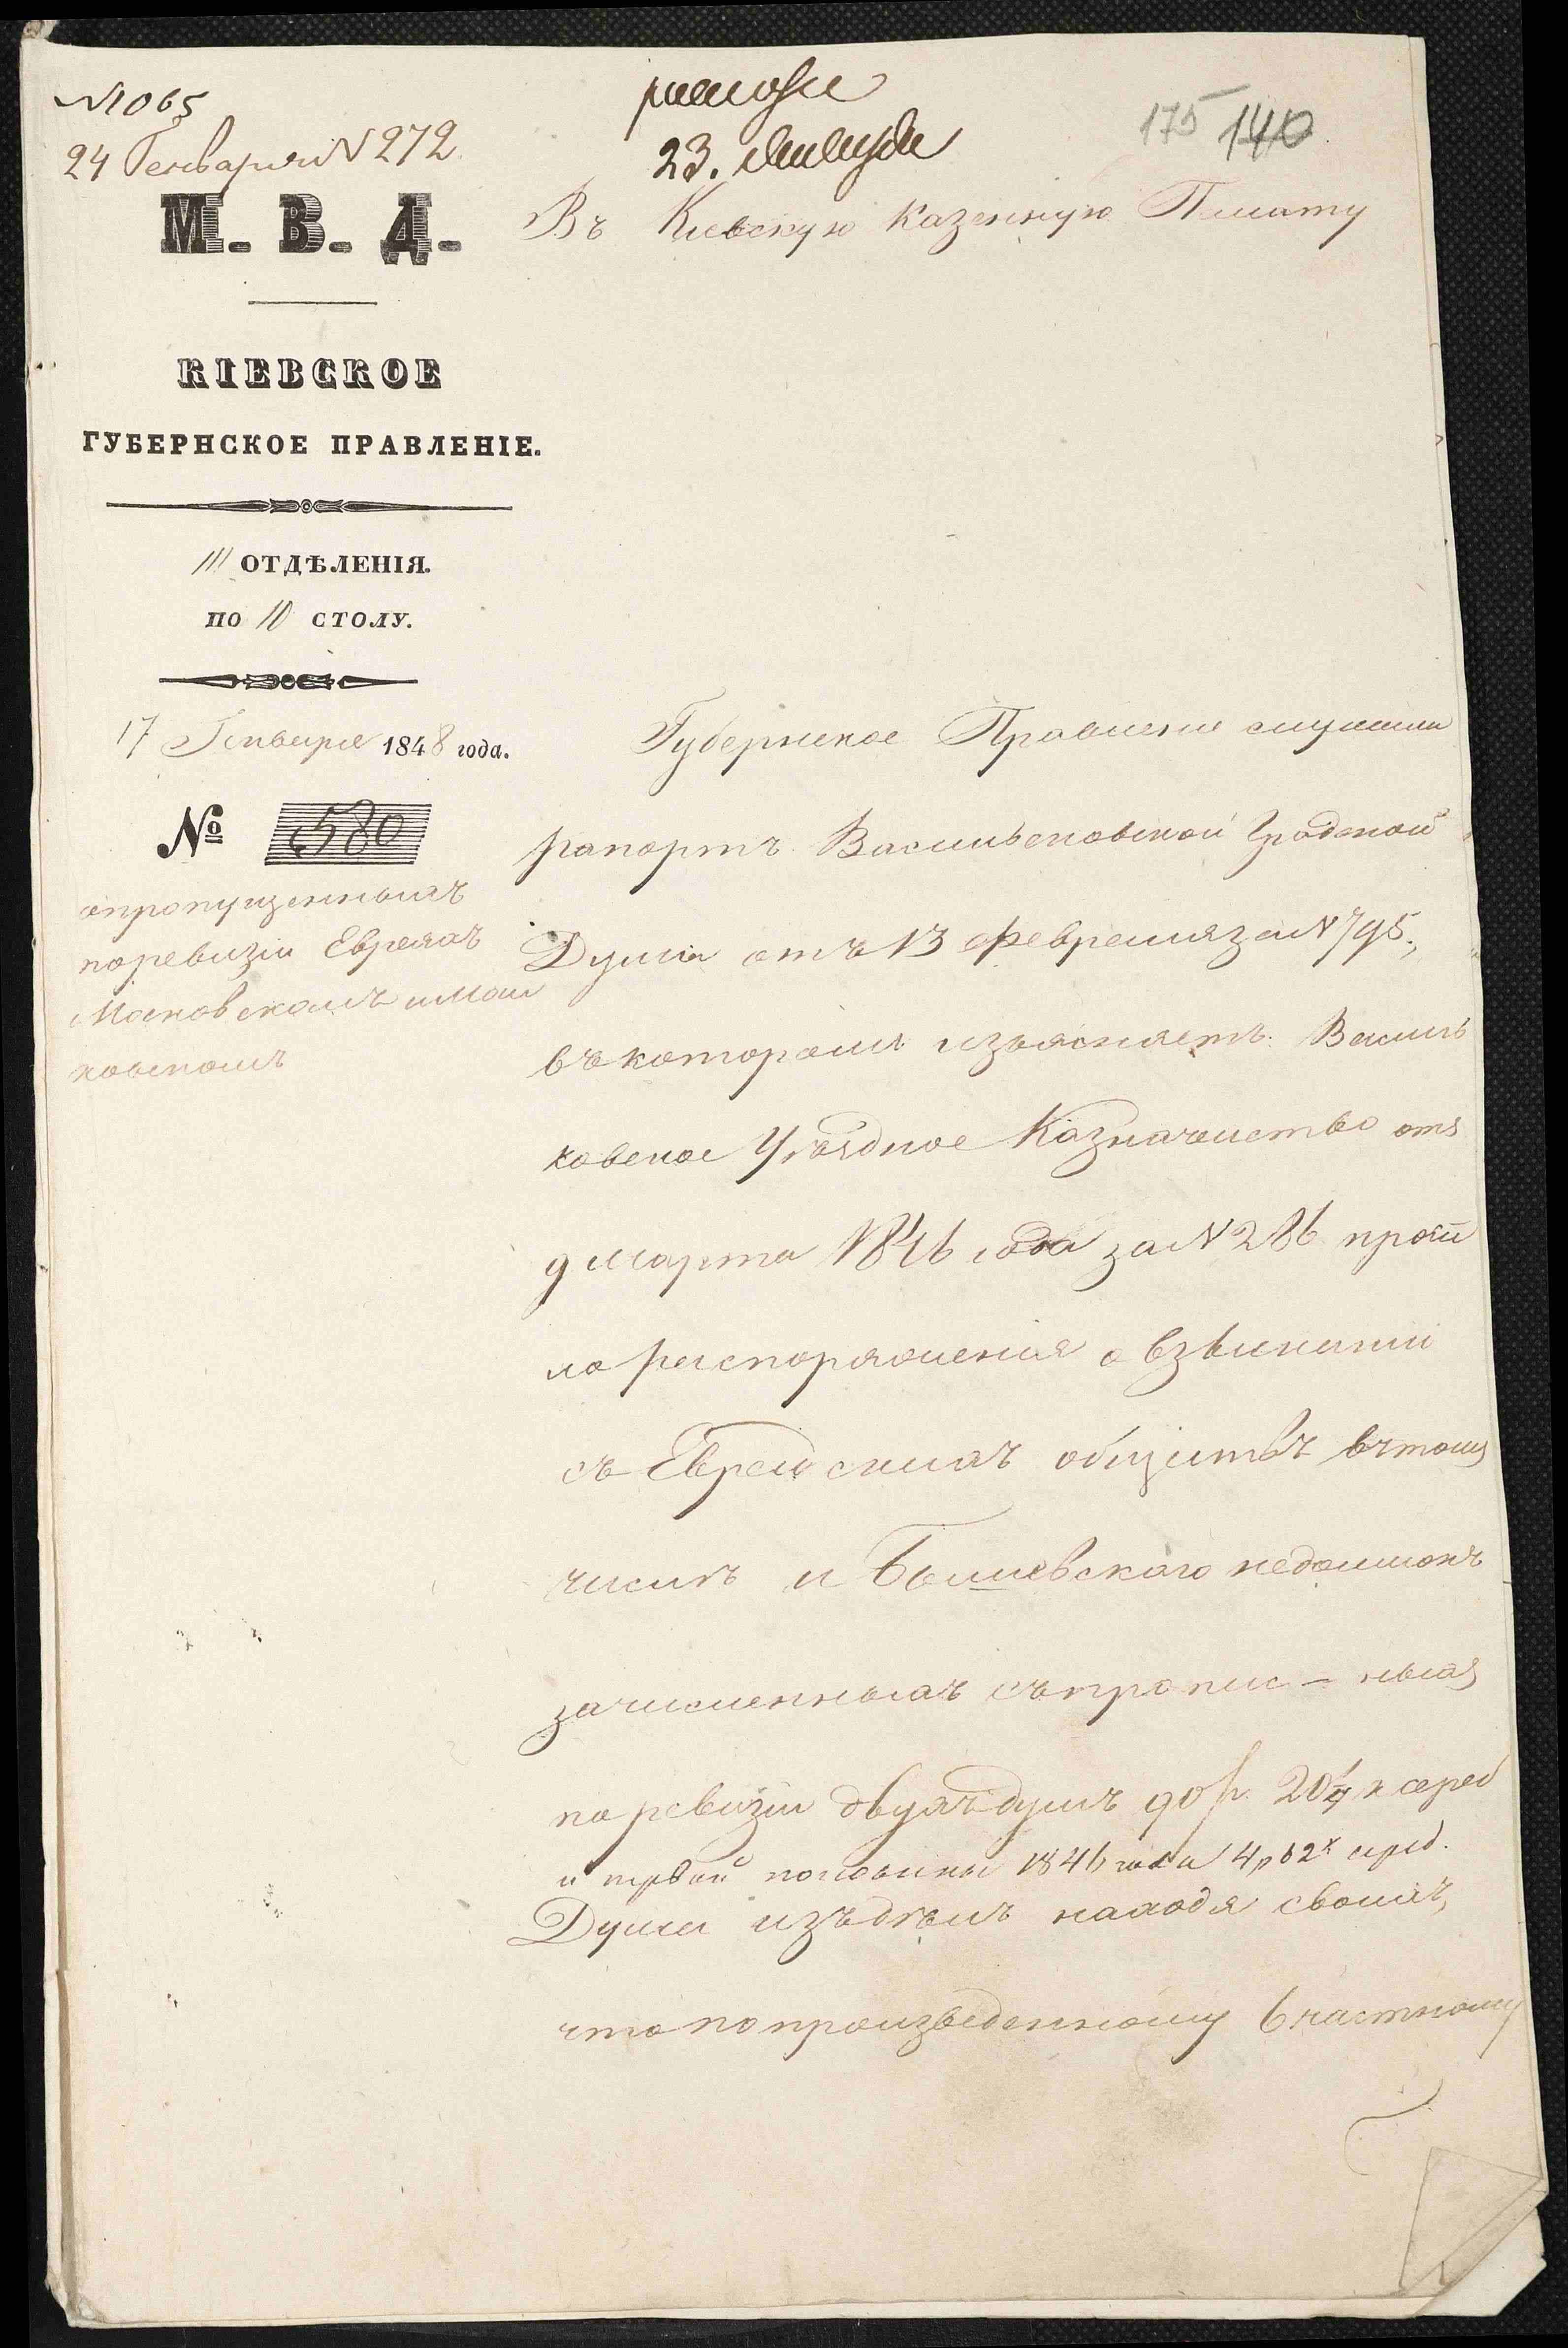 №1065
24 Генваря №272
23. Января
175 140
М. В. Д.
Въ Кіевскую Казенную Палату
КІЕВСКОЕ
ГУБЕРНСКОЕ ПРАВЛЕНІЕ.
III ОТДѢЛЕНІЯ.
ПО 10 СТОЛУ.
17 Генваря 1848 года.
№ 580
опропущенныхъ
поревизіи Евреяхъ
Мосновскомъ и Мош
ковскомъ
Губернское Правленіе слушали
рапортъ Васильковской Градской
Думы отъ 13 Февраля за №795,
въкоторомъ изъясняетъ: Василь
ковское Уѣздное Казначейство отъ
9 Марта 1846 года за №286 прои
ло распоряженія о взысканіи
съ Еврейскихъ обществъ втомъ
числѣ и Бышевскаго недоимокъ
зачисленныхъ съпропис – ныхъ
поревизіи двухъдушъ 90 р. 20¼ к сереб
и первой половины 1846 года 4 р 62 к сереб.
Дума изъдѣлъ находя своихъ,
что попроизведенному